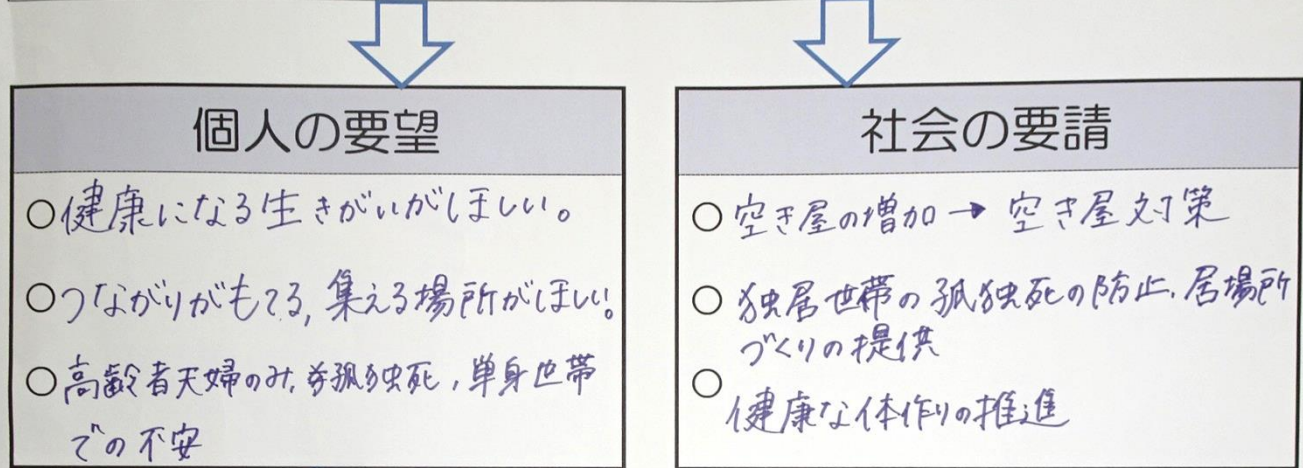 個人の要望
○健康になる生きがいがほしい。
○つながりがもてる,集える場所がほしい。
○高齢者夫婦のみ,孤独死,単身世帯
での不安
社会の要請
○空き屋の増加→空き屋対策
○独居世帯の孤独死の防止,居場所
づくりの提供
○健康な体作りの推進